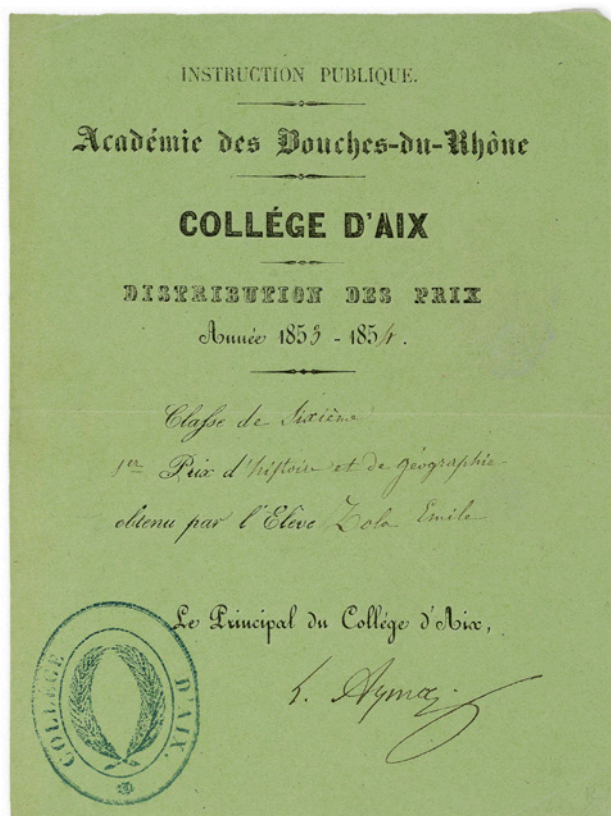 INSTRUCTION PUBLIQUE.
Académie des Bouches-du-Rhône
COLLÉGE D'AIX
DISTRIBUTION DES PRIX
Année 1853 - 1854.
Classe de Sixième
1er Prix d'histoire et de géographie
obtenu par l'Elève Zola Emile
Le Principal du Collége d'Aix,
COLLÉGE D'AIX.